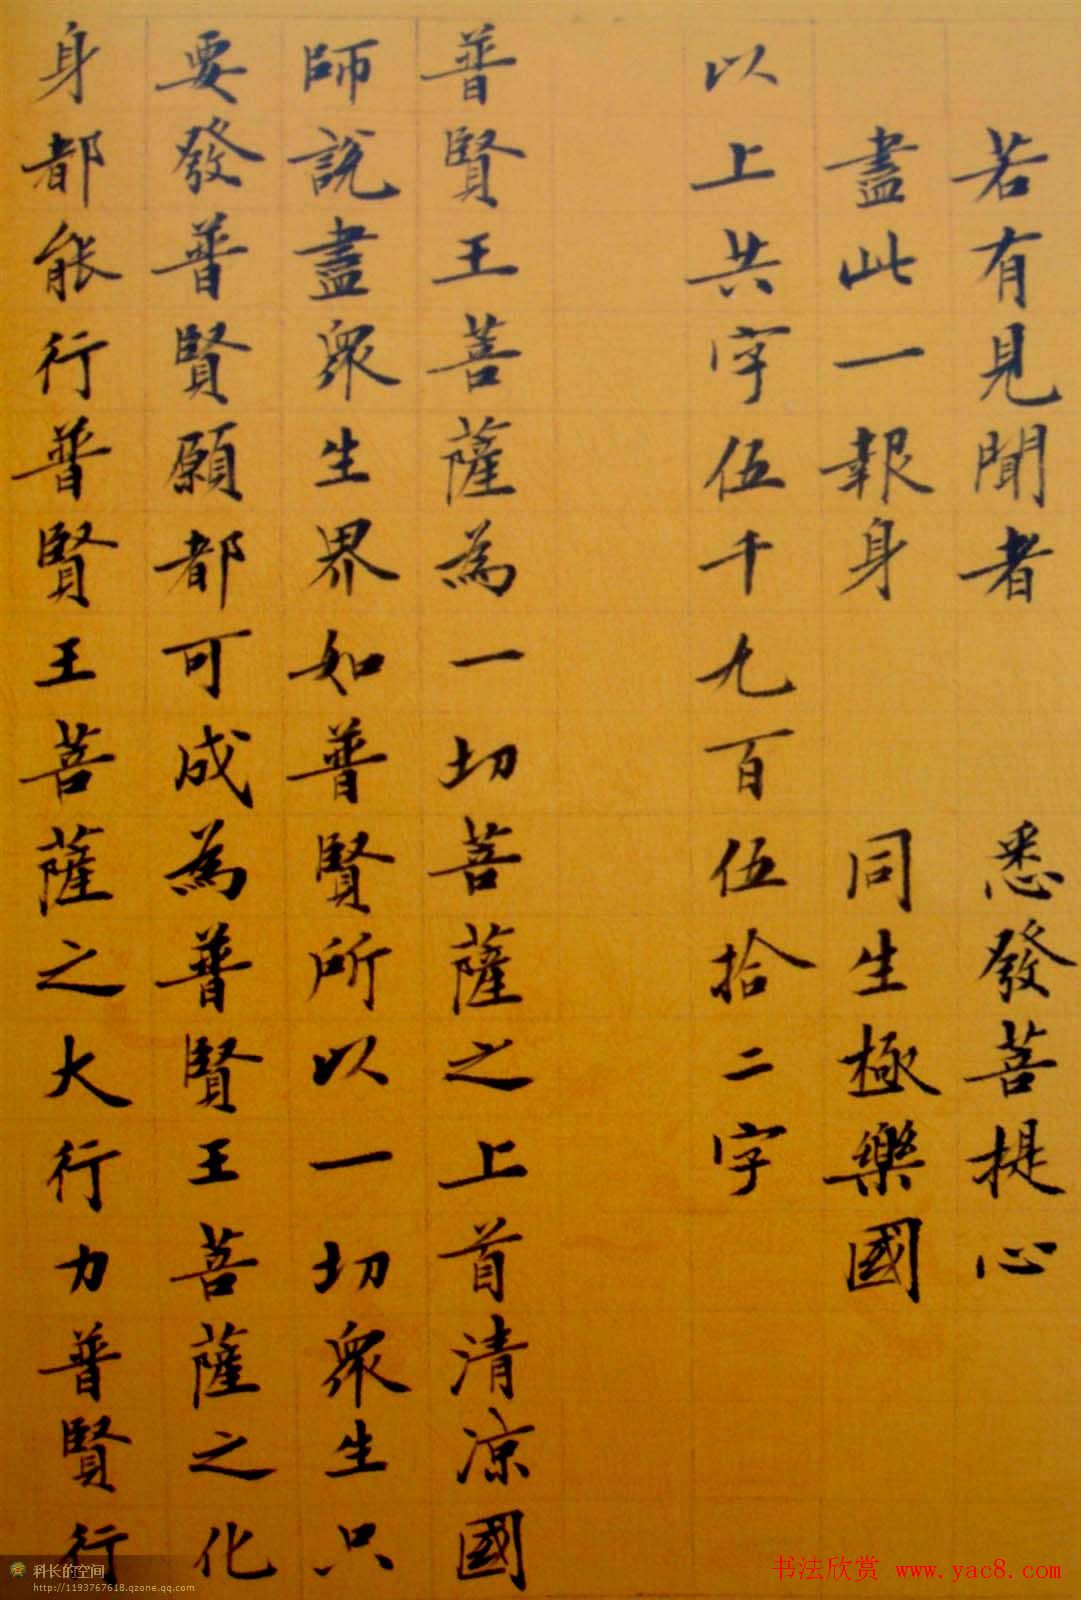 若有見聞者 悉發菩提心
盡此一報身 同生極樂國
以上共字伍千九百伍拾二字
普賢王菩薩為一切菩薩之上首清凉國
師説盡衆生界如普賢所以一切衆生只
要發普賢願都可成為普賢王菩薩之化
身都能行普賢王菩薩之大行力普賢行
科长的空间
http://1193767618.qzone.qq.com
书法欣赏 www.yac8.com